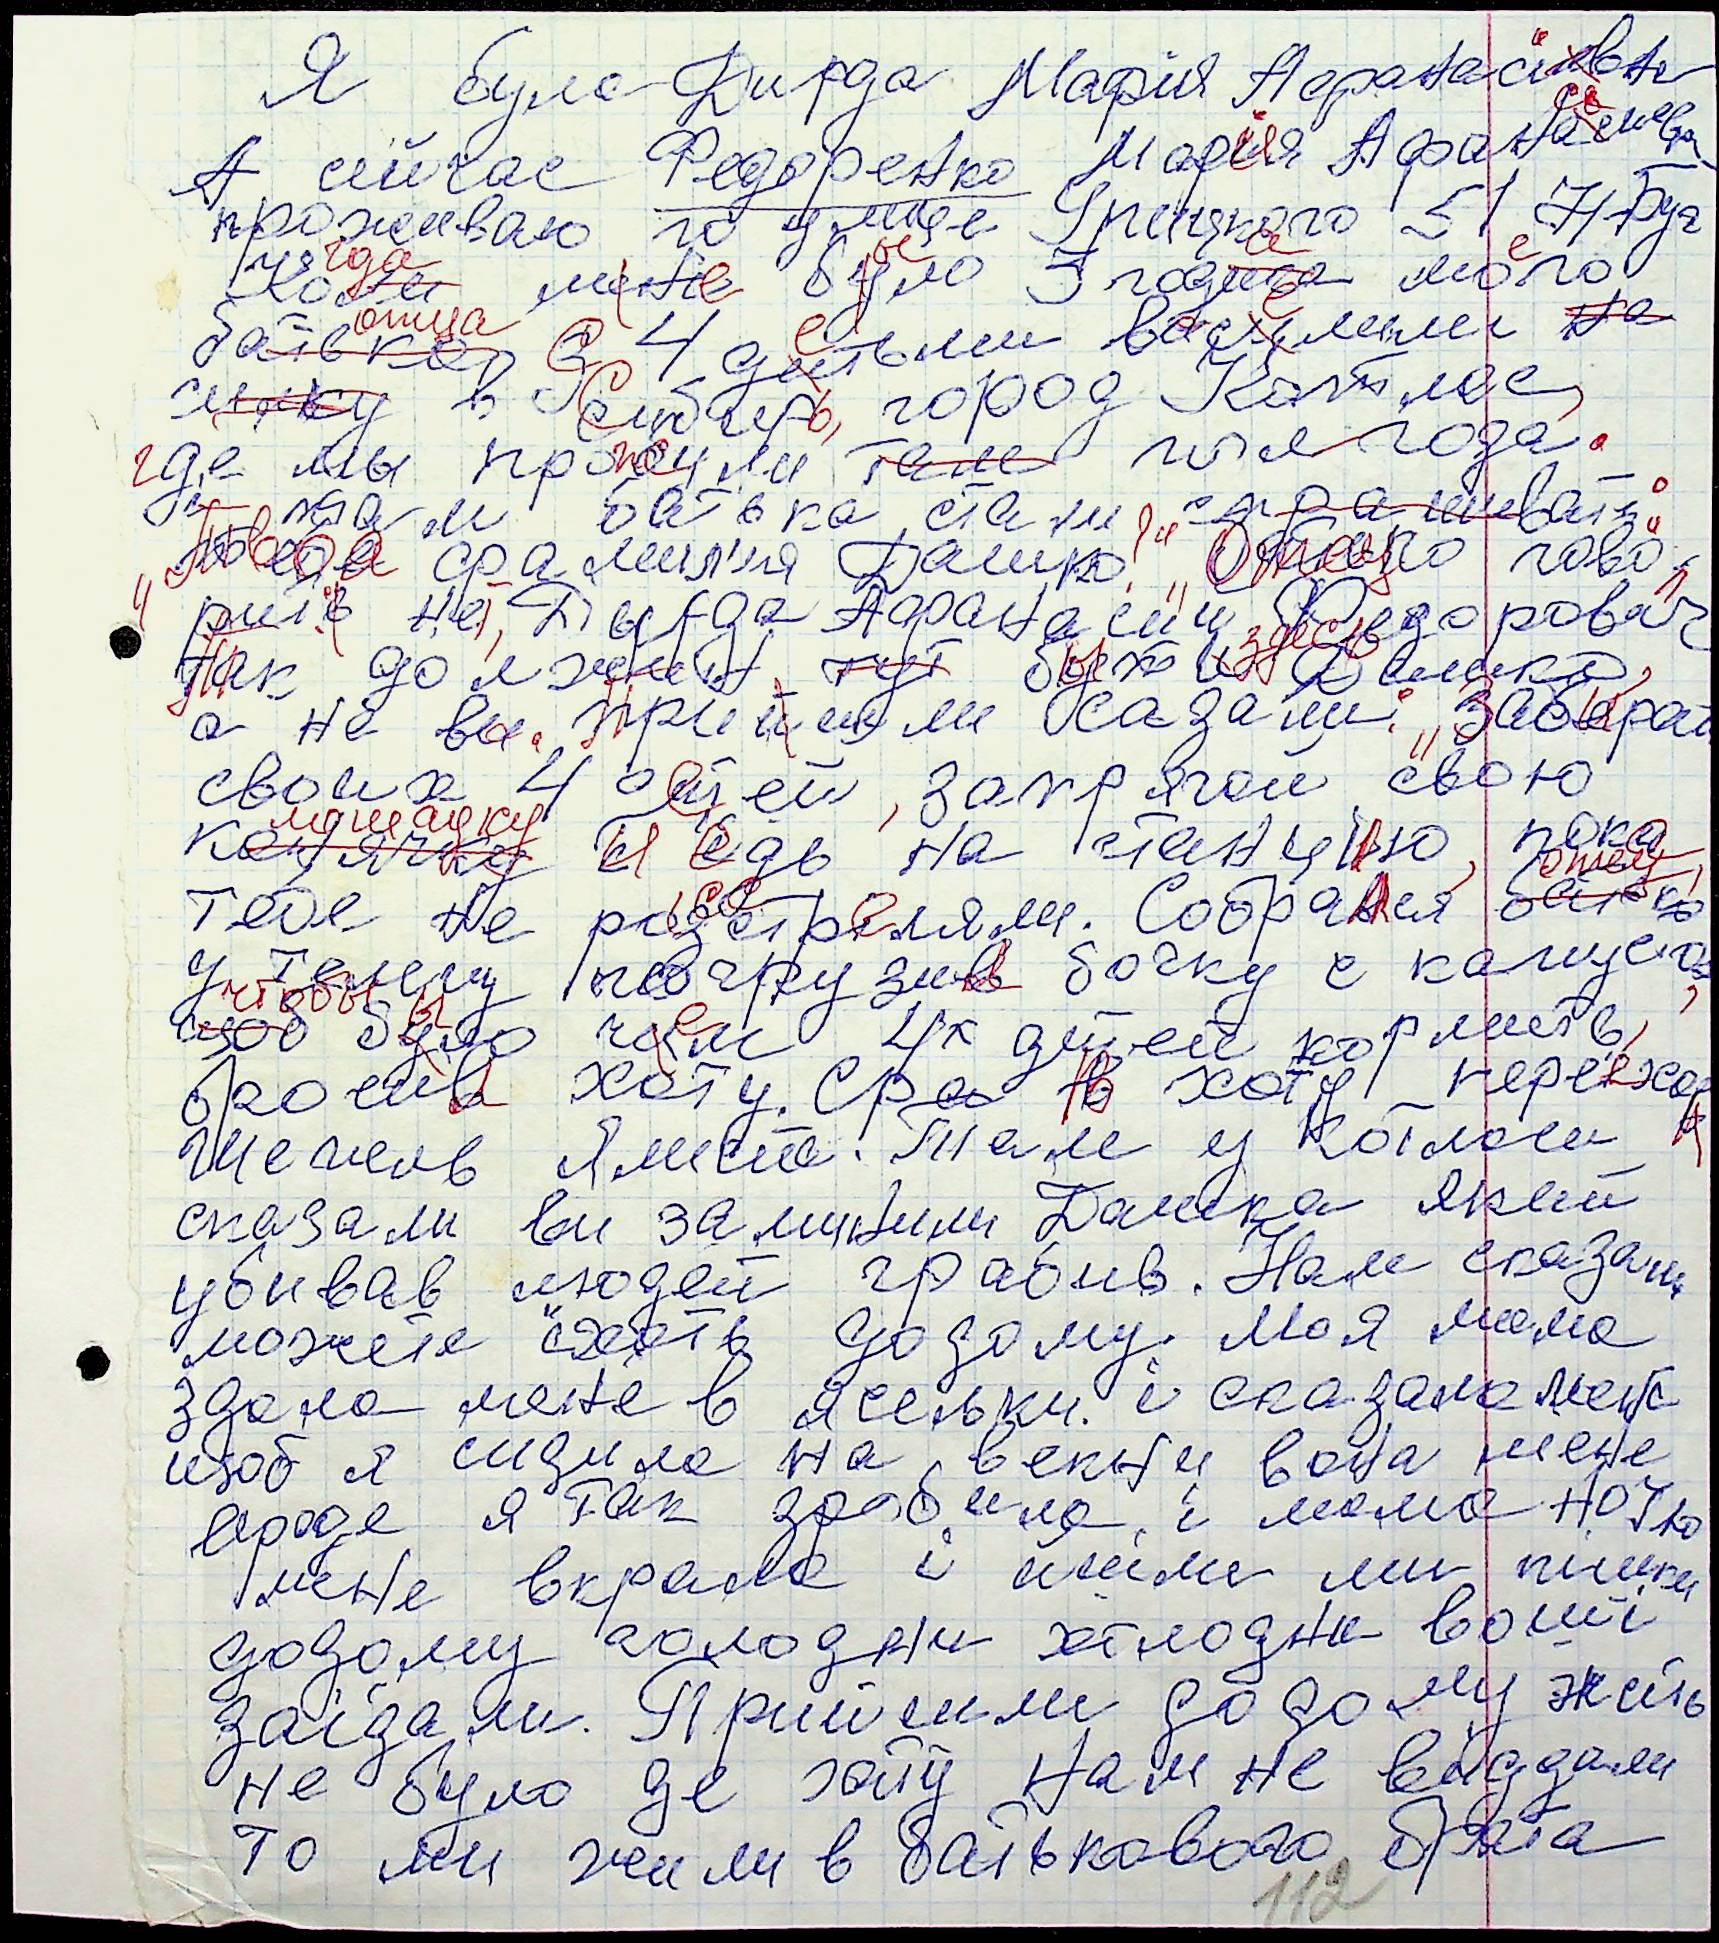 Я була Дирда Марія Афанасіивна
А сийчас Федоренко Марія Афанасиевна
проживаю по улице Грицкого 51
Коли когда мене було 3 годика мого
батька отца з 4 дитьми василили на
силку в Сибирь, город Котлас,
где мы прожили там пол года.
и там батька стали спрашивать:
"Твоя фамилия Дашко?" "Отец гово-
рить нет, Дирда Афанасий Федорович"
Так должен тут здесь бути Дашко,
а не ви. Прийшли сказали: "Забирай
своих 4 дітей, запрягай свою
конячку лошадку и едь на станцию, пока
тебе не розстріляли. Собрался батько отец,
у телигу погрузив бочку с капустой,
щоб чтобы було чим 4х дітей кормить,
бросив хату. Сразу в хату переехал
учитель. Там у Котласи
сказали ви заминили Дашка який
убивав людей грабив. Нам сказали
можете ехать додому. Моя мама
здала мене в ясельки. і сказала мені
щоб я сидила на векни вона мене
вкраде я так зробила, і мама ночю
мене вкрала і йшли ми пішки
додому голодни холодни воши
заїдали. Прийшли додому жить
не було де хату нам не віддали
то ми жили в батькового брата
112